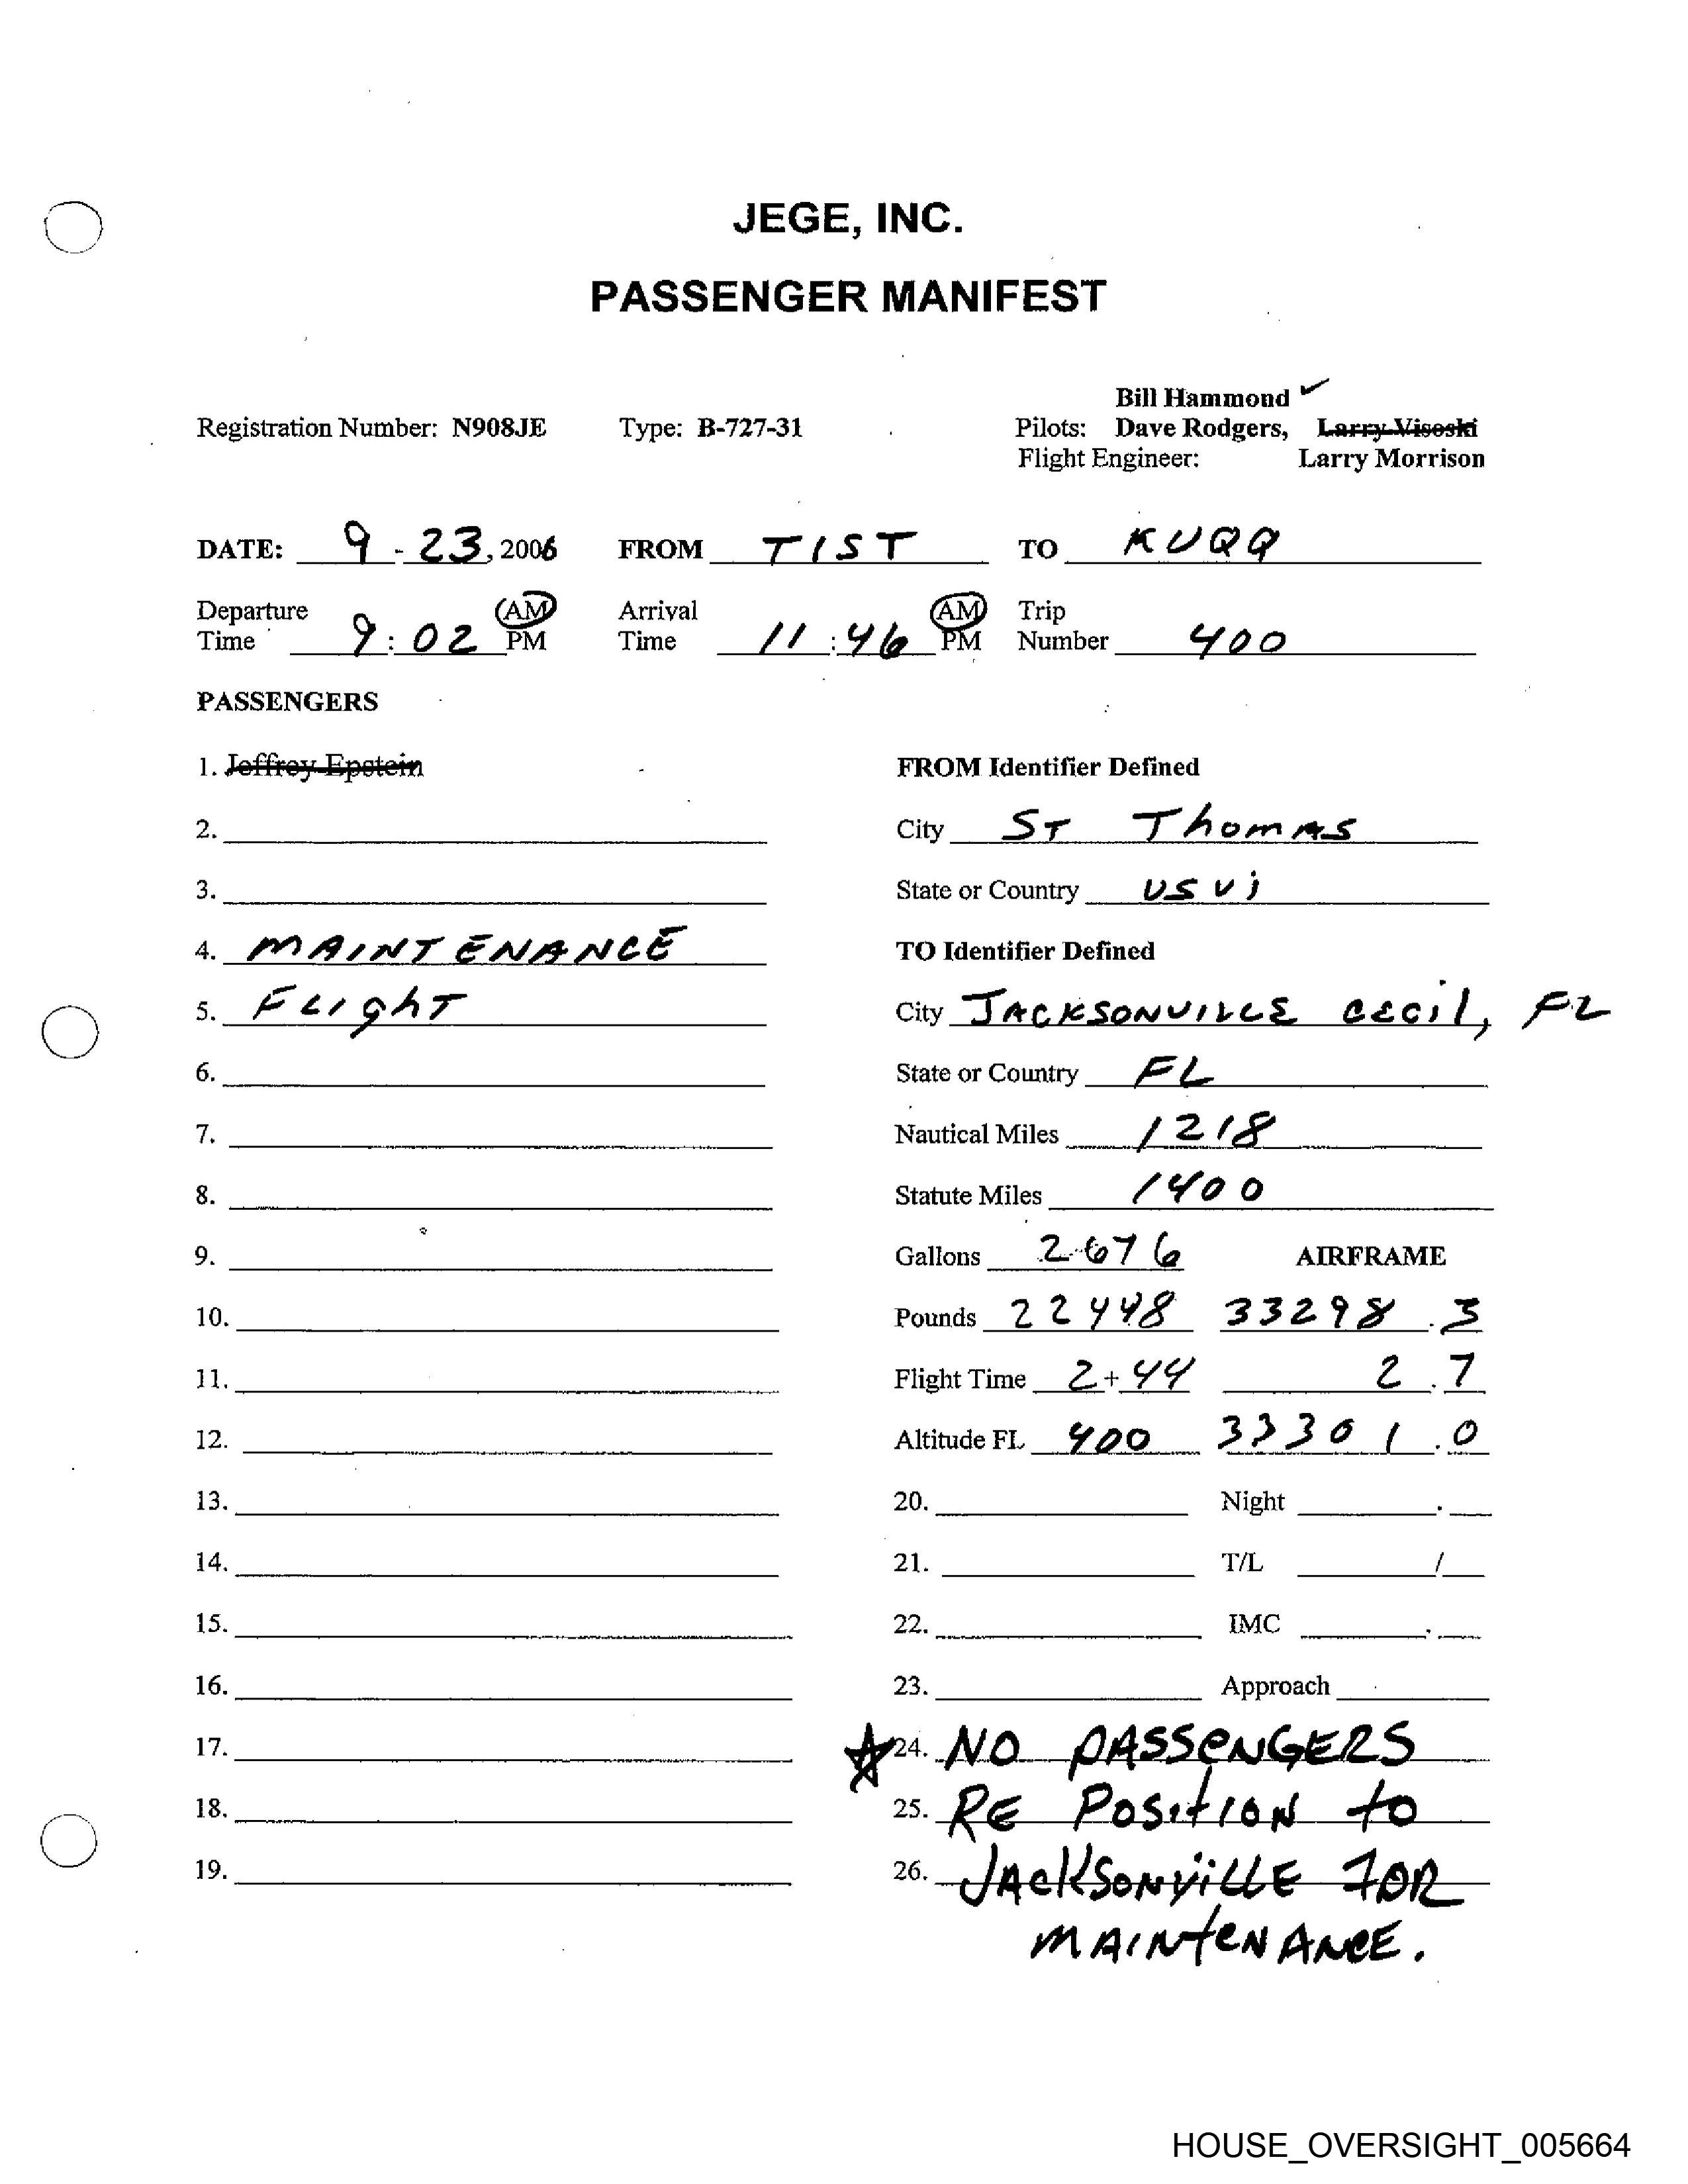 JEGE, INC.
PASSENGER MANIFEST
Bill Hammond ✓
Registration Number: N908JE Type: B-727-31 Pilots: Dave Rodgers, Larry Visoski
Flight Engineer: Larry Morrison
DATE: 9 - 23, 2006 FROM TIST TO KUQQ
Departure AM Arrival AM Trip
Time 9:02 PM Time 11:46 PM Number 400
PASSENGERS
1. Jeffrey Epstein FROM Identifier Defined
2. City ST Thomas
3. State or Country USVi
4. MAINTENANCE TO Identifier Defined
5. FLIghT City JACKSONVILLE cecil, FL
6. State or Country FL
7. Nautical Miles 1218
8. Statute Miles 1400
9. Gallons 2676 AIRFRAME
10. Pounds 22448 33298.3
11. Flight Time 2+44 2.7
12. Altitude FL 400 33301.0
13. 20. Night .
14. 21. T/L /
15. 22. IMC .
16. 23. Approach
17. ☆ 24. NO PASSeNGERS
18. 25. RE POSitION to
19. 26. JAckSONViLLE FOR
MAINteNANcE.
HOUSE_OVERSIGHT_005664